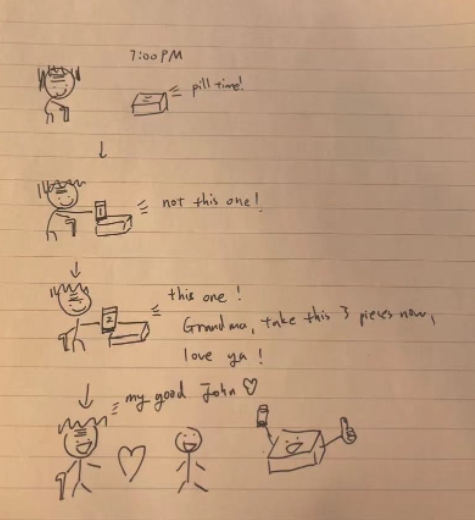 7:00PM
pill time!
not this one!
1
this one!
2
Grandma, take this 3 pieces now,
love ya!
my good John ♡